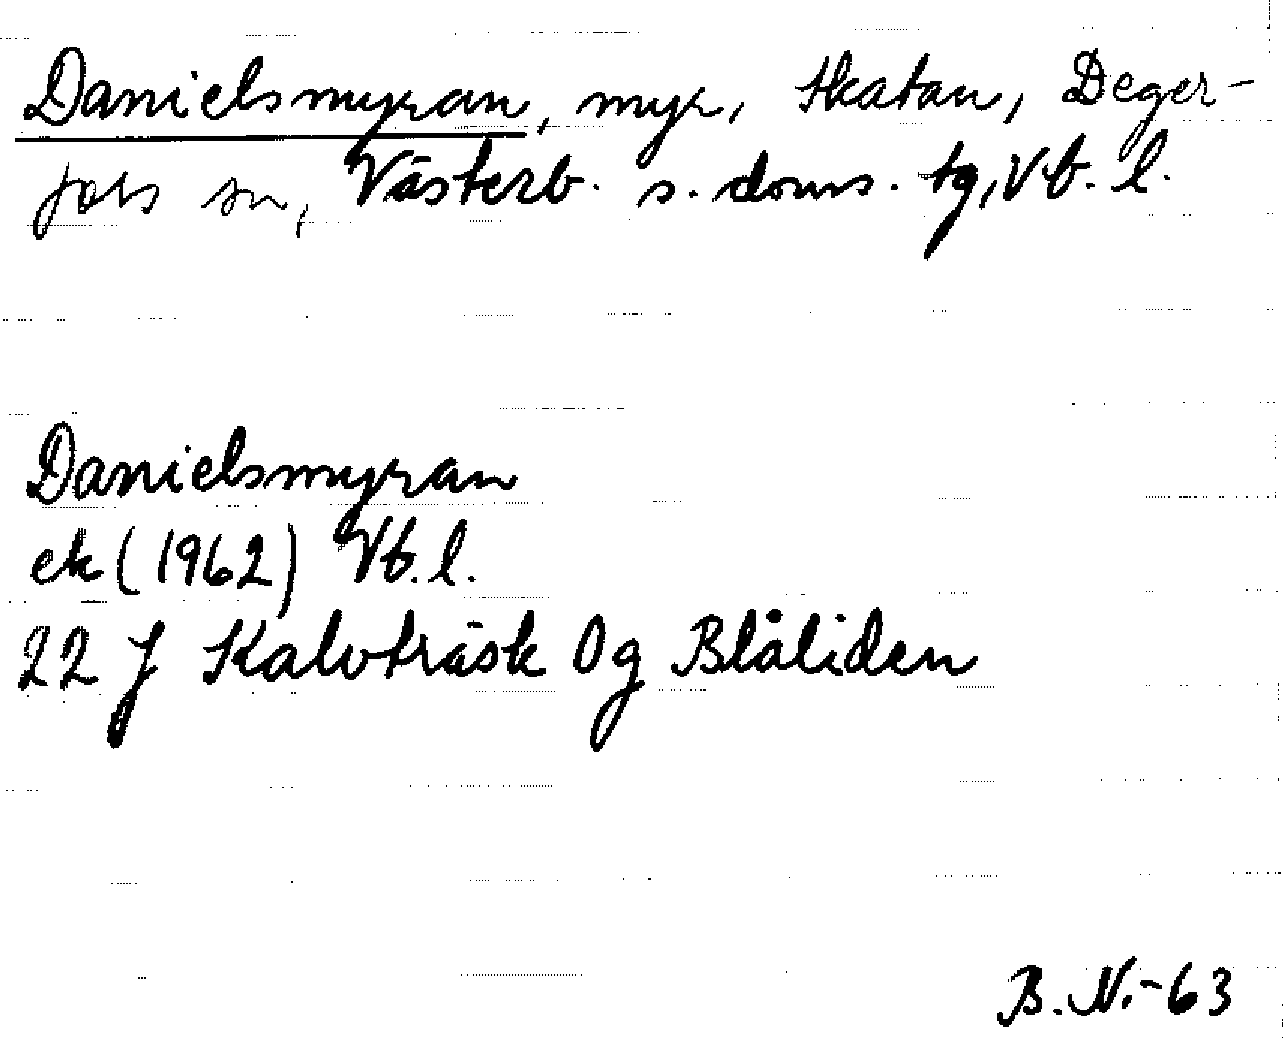 Danielsmyran, myr, Skatan, Deger-
fors sn, Västerb. s. doms. tg, Vb. l.
Danielsmyran
ek (1962) Vb. l.
22 J Kalvträsk Og Blåliden
B. N. -63